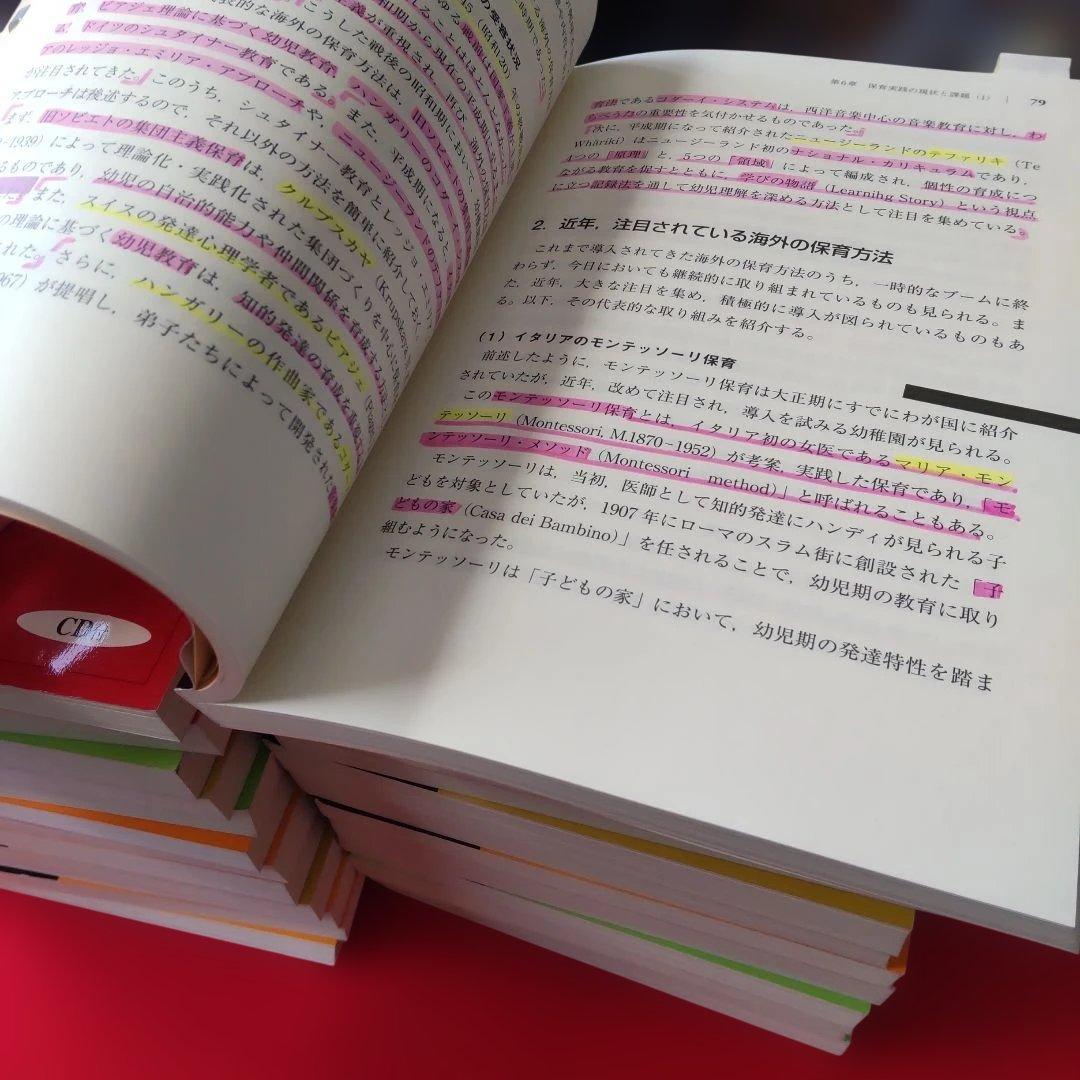 の受容状況
ピアジェ理論に基づく幼児教育
ドイツのシュタイナー教育である。また，平成期になると，
アのレッジョ・エミリア・アプローチや，ニュージーランドの
が注目されてきた。このうち，シュタイナー教育とレッジョ・
アプローチは後述するので，それ以外の方法を簡単に紹介しておく
まず，旧ソビエトの集団主義保育は，クルプスカヤ（Krupskaya,
-1939）によって理論化・実践化された集団づくりを中心に
るものであり，幼児の自治的能力や仲間関係を育成する
また，スイスの発達心理学者であるピアジェ
の理論に基づく幼児教育は，知的発達の育成を重視
れた。さらに，ハンガリーの作曲家であるコダーイ
967）が提唱し，弟子たちによって開発された
CD付
第6章　保育実践の現状と課題（1）　79
育法であるコダーイ・システムは，西洋音楽中心の音楽教育に対し，わ
らべうたの重要性を気付かせるものであった。
次に，平成期になって紹介されたニュージーランドのテファリキ（Te
Whāriki）はニュージーランド初のナショナル・カリキュラムであり，
4つの「原理」と，5つの「領域」によって編成され，個性の育成につ
ながる教育を促すとともに，学びの物語（Learnihg Story）という視点
に立つ記録法を通して幼児理解を深める方法として注目を集めている。
2．近年，注目されている海外の保育方法
これまで導入されてきた海外の保育方法のうち，一時的なブームに終
わらず，今日においても継続的に取り組まれているものも見られる。ま
た，近年，大きな注目を集め，積極的に導入が図られているものもあ
る。以下，その代表的な取り組みを紹介する。
（1）イタリアのモンテッソーリ保育
前述したように，モンテッソーリ保育は大正期にすでにわが国に紹介
されていたが，近年，改めて注目され，導入を試みる幼稚園が見られる。
このモンテッソーリ保育とは，イタリア初の女医であるマリア・モン
テッソーリ（Montessori, M.1870-1952）が考案，実践した保育であり，「モ
ンテッソーリ・メソッド（Montessori method）」と呼ばれることもある。
モンテッソーリは，当初，医師として知的発達にハンディが見られる子
どもを対象としていたが，1907年にローマのスラム街に創設された「子
どもの家（Casa dei Bambino）」を任されることで，幼児期の教育に取り
組むようになった。
モンテッソーリは「子どもの家」において，幼児期の発達特性を踏ま